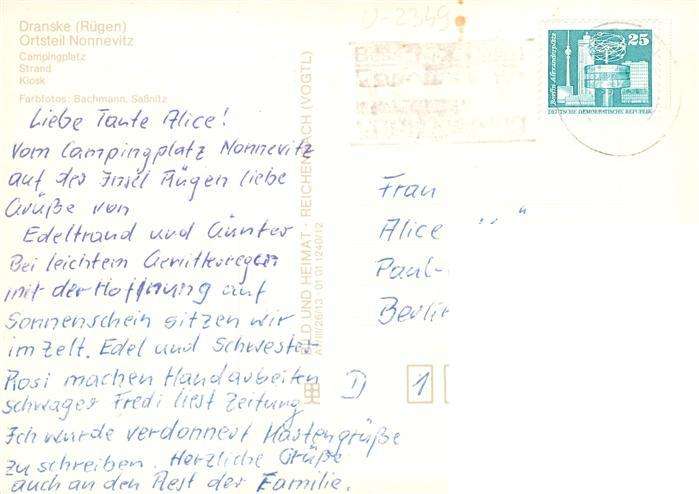 Dranske (Rügen)
Ortsteil Nonnevitz
Campingplatz
Strand
Kiosk
Farbfotos: Bachmann, Saßnitz
U-2349
Berlin, Alexanderplatz
25
DEUTSCHE DEMOKRATISCHE REPUBLIK
Liebe Tante Alice!
Vom Campingplatz Nonnevitz
auf der Insel Rügen liebe
Grüße von
Edeltrand und Günter
Bei leichtem Gewitterregen
mit der Hoffnung auf
Sonnenschein sitzen wir
im Zelt. Edel und Schwester
Rosi machen Handarbeiten
Schwager Fredi liest Zeitung
Ich wurde verdonnert Kartengrüße
zu schreiben. Herzliche Grüße
auch an den Rest der Familie.
BILD UND HEIMAT · REICHENBACH (VOGTL)
A1/III/26/13 01 01 1240/12
Frau
Alice
Paul-
Berlin
D 1